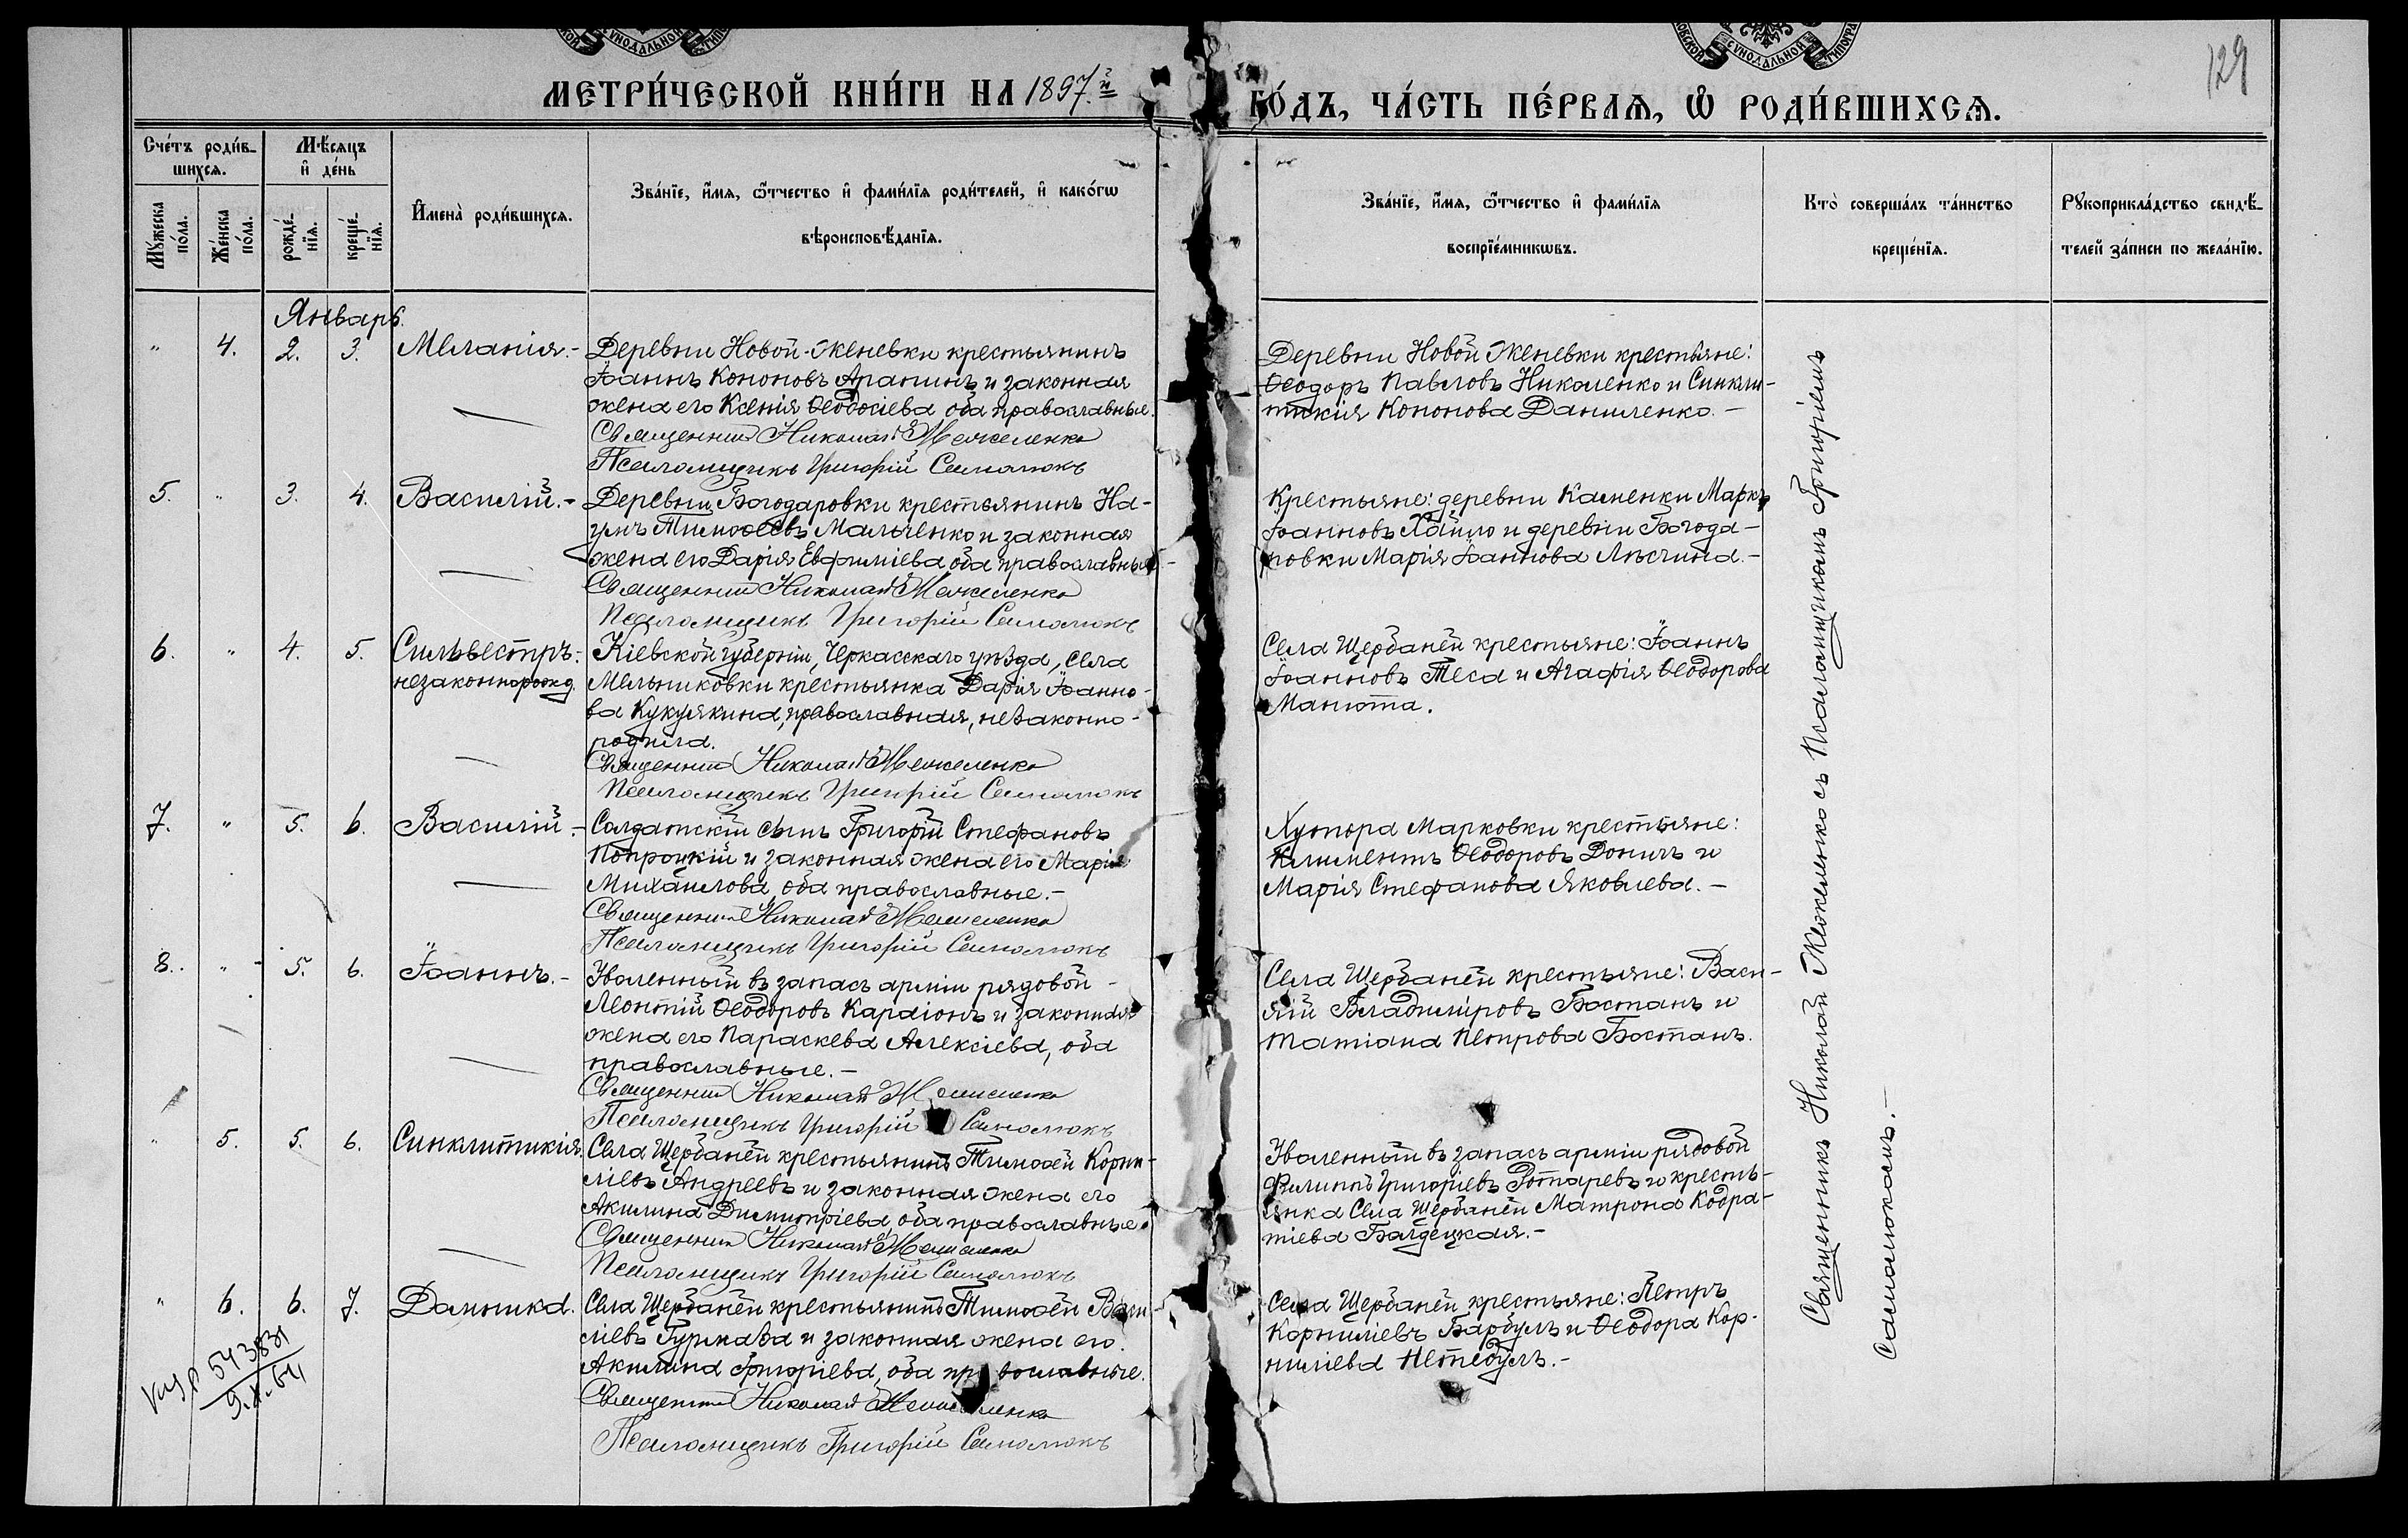 СУНОДАЛЬНОЙ
СУНОДАЛЬНОЙ
129
МЕТРИ́ЧЕСКОЙ КНИ́ГИ НА 1897.й
ГО́ДЪ, ЧА́СТЬ ПЕ́РВАѦ, Ѡ РОДИ́ВШИХСѦ.
Сче́тъ роди́в-
шихсѧ.
Мꙋ́жеска по́ла.
Же́нска по́ла.
Мѣ́сѧцъ
и де́нь
рожде́-
нїѧ.
креще́-
нїѧ.
Имена̀ роди́вшихсѧ.
Зва́нїе, и́мѧ, ѻ́тчество и фами́лїѧ роди́телей, и како́гѡ
вѣроисповѣ́данїѧ.
Зва́нїе, и́мѧ, ѻ́тчество и фами́лїѧ
воспрїе́мникѡвъ.
Кто̀ соверша́лъ та́инство
креще́нїѧ.
Рꙋкоприкла́дство свидѣ́-
телей за́писи по жела́нїю.
Январь.
" 4. 2. 3. Меланія.-
Деревни Новой-Женевки крестьянинъ
Іоаннъ Кононовъ Арапинъ и законная
жена его Ксенія Ѳеодосіева оба православные.
Священникъ Николай Межеленко
Псаломщикъ Григорій Самолюкъ
Деревни Новой Женевки крестьяне:
Ѳеодоръ Павловъ Николенко и Синкли-
тикія Кононова Даниленко.-
5. " 3. 4. Василій.-
Деревни Богодаровки крестьянинъ На-
умъ Тимоѳеевъ Мальченко и законная
жена его Дарія Евфиміева оба православные.-
Священникъ Николай Межеленко
Псаломщикъ Григорій Самолюкъ
Крестьяне: деревни Каменки Маркъ
Іоанновъ Хайло и деревни Богода-
ровки Марія Іоаннова Лѣсчина.-
6. " 4. 5. Сильвестръ.-
незаконнорожд.
Кіевской губерніи, Черкасскаго уѣзда, села
Мельниковки крестьянка Дарія Іоанно-
ва Кукулякина, православная, незаконно-
родила.
Священникъ Николай Межеленко
Псаломщикъ Григорій Самолюкъ
Села Щербаней крестьяне: Іоаннъ
Іоанновъ Теса и Агафія Ѳеодорова
Манюта.
7. " 5. 6. Василій.-
Солдатскій сынъ Григорій Стефановъ
Копроцкій и законная жена его Марія
Михайлова, оба православные.-
Священникъ Николай Межеленко
Псаломщикъ Григорій Самолюкъ
Хутора Марковки крестьяне:
Климентъ Ѳеодоровъ Донич и
Марія Стефанова Яковлева.-
8. " 5. 6. Іоаннъ.-
Уволенный въ запасъ арміи рядовой
Леонтій Ѳеодоровъ Караіонъ и законная
жена его Параскева Алексіева, оба
православные.-
Священникъ Николай Межеленко
Псаломщикъ Григорій Самолюкъ
Села Щербаней крестьяне: Васи-
лій Владиміровъ Бостанъ и
Татіана Петрова Бостанъ.
" 5. 5. 6. Синклитикія.
Села Щербаней крестьянинъ Тимоѳей Корни-
ліевъ Андреевъ и законная жена его
Акилина Димитріева, оба православные.
Священникъ Николай Межеленко
Псаломщикъ Григорій Самолюкъ
Уволенный въ запасъ арміи рядовой
Филиппъ Григоріевъ Ротаревъ и кресть-
янка Села Щербаней Матрона Кодра-
тіева Балдецкая.-
" 6. 6. 7. Домника.
Села Щербаней крестьянинъ Тимоѳей Васи-
ліевъ Гурмаза и законная жена его
Акилина Григоріева, оба православные.
Священникъ Николай Межеленко
Псаломщикъ Григорій Самолюкъ
Села Щербаней крестьяне: Петръ
Корниліевъ Барбулъ и Ѳеодора Кор-
ниліева Нетебулъ.-
Священникъ Николай Межеленко съ Псаломщикомъ Григоріемъ
Самолюкомъ.-
9.X.64